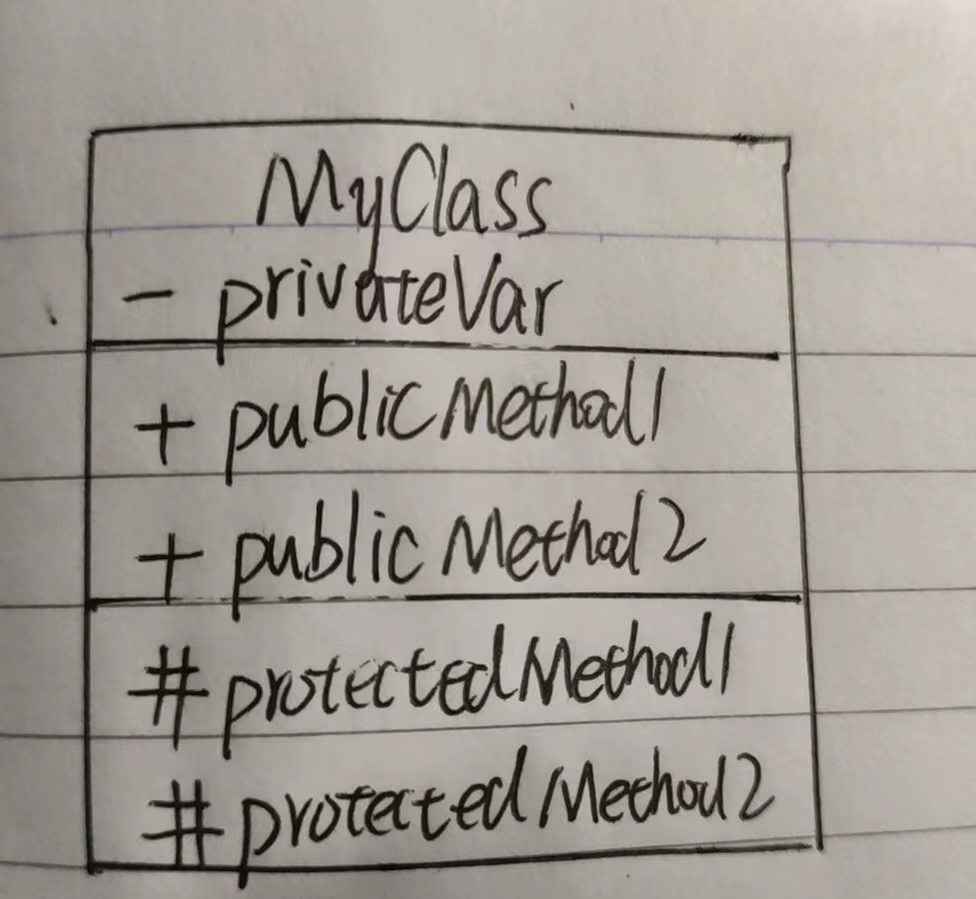 MyClass
- privateVar
+ publicMethod1
+ publicMethod2
# protectedMethod1
# protectedMethod2